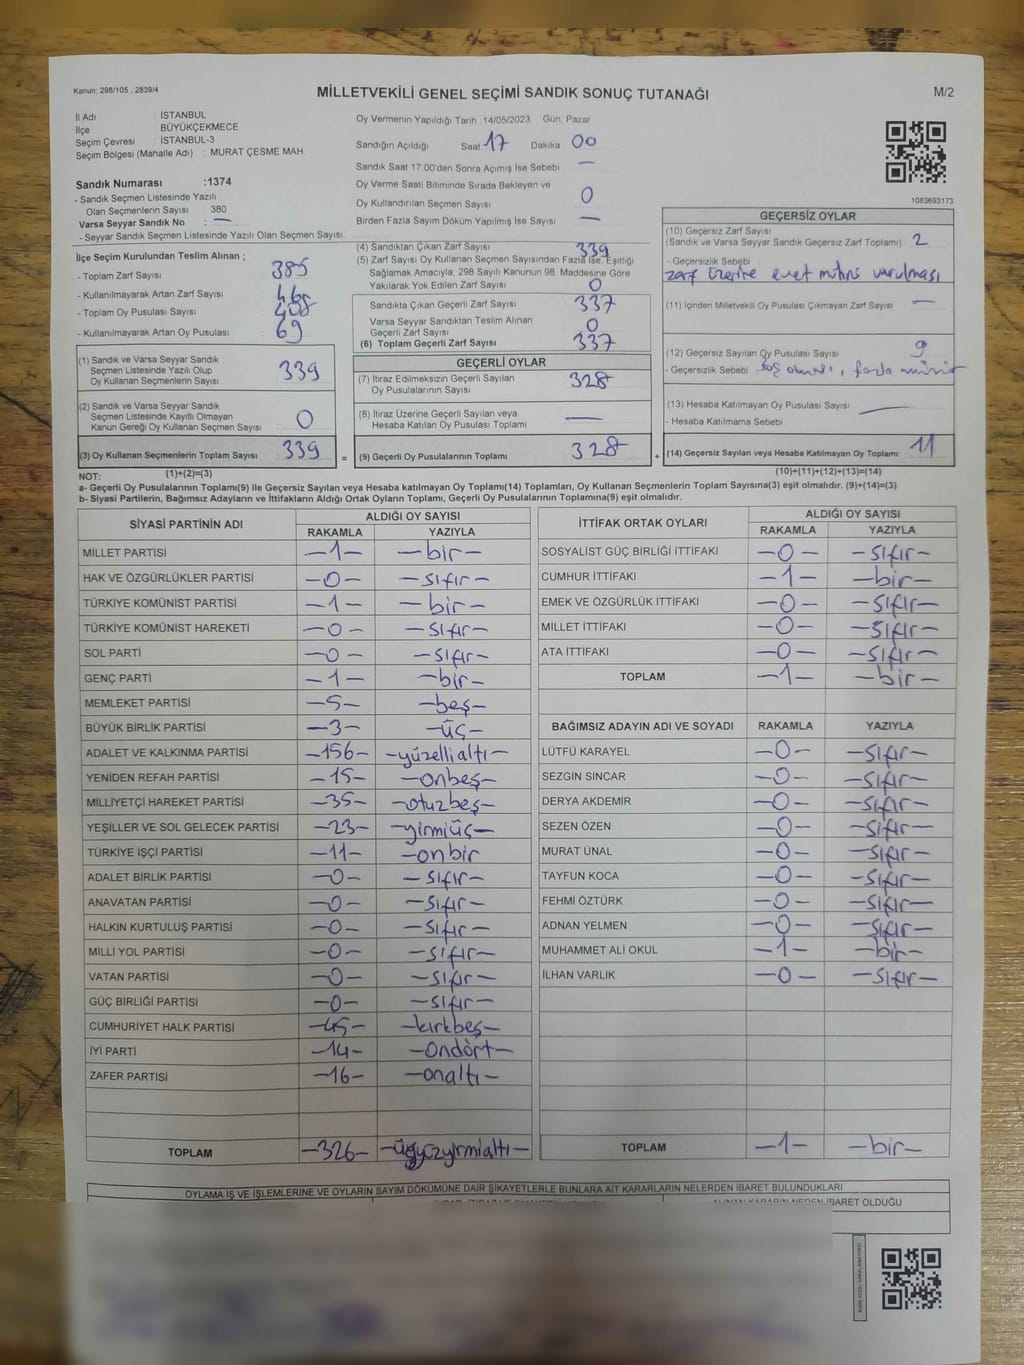 Kanun: 298/105 , 2839/4
MİLLETVEKİLİ GENEL SEÇİMİ SANDIK SONUÇ TUTANAĞI
M/2
İl Adı : İSTANBUL
İlçe : BÜYÜKÇEKMECE
Seçim Çevresi : İSTANBUL-3
Seçim Bölgesi (Mahalle Adı) : MURAT ÇESME MAH.
Sandık Numarası :1374
- Sandık Seçmen Listesinde Yazılı
Olan Seçmenlerin Sayısı : 380
Varsa Seyyar Sandık No : —
- Seyyar Sandık Seçmen Listesinde Yazılı Olan Seçmen Sayısı:
Oy Vermenin Yapıldığı Tarih :14/05/2023 Gün: Pazar
Sandığın Açıldığı Saat 17 Dakika 00
Sandık Saat 17:00'den Sonra Açımış İse Sebebi —
Oy Verme Saati Bitiminde Sırada Bekleyen ve
Oy Kullandırılan Seçmen Sayısı 0
Birden Fazla Sayım Döküm Yapılmış İse Sayısı —
1083693173
İlçe Seçim Kurulundan Teslim Alınan ;
- Toplam Zarf Sayısı : 385
- Kullanılmayarak Artan Zarf Sayısı :
- Toplam Oy Pusulası Sayısı : 408
- Kullanılmayarak Artan Oy Pusulası : 69
(1) Sandık ve Varsa Seyyar Sandık
Seçmen Listesinde Yazılı Olup
Oy Kullanan Seçmenlerin Sayısı : 339
(2) Sandık ve Varsa Seyyar Sandık
Seçmen Listesinde Kayıtlı Olmayan
Kanun Gereği Oy Kullanan Seçmen Sayısı : 0
(3) Oy Kullanan Seçmenlerin Toplam Sayısı 339 =
(4) Sandıktan Çıkan Zarf Sayısı 339
(5) Zarf Sayısı Oy Kullanan Seçmen Sayısından Fazla İse, Eşitliği
Sağlamak Amacıyla, 298 Sayılı Kanunun 98. Maddesine Göre
Yakılarak Yok Edilen Zarf Sayısı 0
Sandıkta Çıkan Geçerli Zarf Sayısı : 337
Varsa Seyyar Sandıktan Teslim Alınan
Geçerli Zarf Sayısı : 0
(6) Toplam Geçerli Zarf Sayısı : 337
GEÇERLİ OYLAR
(7) İtiraz Edilmeksizin Geçerli Sayılan
Oy Pusulalarının Sayısı : 328
(8) İtiraz Üzerine Geçerli Sayılan veya
Hesaba Katılan Oy Pusulası Toplamı : —
(9) Geçerli Oy Pusulalarının Toplamı : 328 +
GEÇERSİZ OYLAR
(10) Geçersiz Zarf Sayısı
(Sandık ve Varsa Seyyar Sandık Geçersiz Zarf Toplamı) : 2
- Geçersizlik Sebebi
zarf üzerine evet mührü vurulması
(11) İçinden Milletvekili Oy Pusulası Çıkmayan Zarf Sayısı : —
(12) Geçersiz Sayılan Oy Pusulası Sayısı : 9
- Geçersizlik Sebebi boş olması, fazla mühür
(13) Hesaba Katılmayan Oy Pusulası Sayısı : —
- Hesaba Katılmama Sebebi
(14) Geçersiz Sayılan veya Hesaba Katılmayan Oy Toplamı : 11
NOT: (1)+(2)=(3)
(10)+(11)+(12)+(13)=(14)
a- Geçerli Oy Pusulalarının Toplamı(9) ile Geçersiz Sayılan veya Hesaba katılmayan Oy Toplamı(14) Toplamları, Oy Kullanan Seçmenlerin Toplam Sayısına(3) eşit olmalıdır. (9)+(14)=(3)
b- Siyasi Partilerin, Bağımsız Adayların ve İttifakların Aldığı Ortak Oyların Toplamı, Geçerli Oy Pusulalarının Toplamına(9) eşit olmalıdır.
SİYASİ PARTİNİN ADI ALDIĞI OY SAYISI
RAKAMLA YAZIYLA
MİLLET PARTİSİ —1— —bir—
HAK VE ÖZGÜRLÜKLER PARTİSİ —0— —sıfır—
TÜRKİYE KOMÜNİST PARTİSİ —1— —bir—
TÜRKİYE KOMÜNİST HAREKETİ —0— —sıfır—
SOL PARTİ —0— —sıfır—
GENÇ PARTİ —1— —bir—
MEMLEKET PARTİSİ —5— —beş—
BÜYÜK BİRLİK PARTİSİ —3— —üç—
ADALET VE KALKINMA PARTİSİ —156— —yüzellialtı—
YENİDEN REFAH PARTİSİ —15— —onbeş—
MİLLİYETÇİ HAREKET PARTİSİ —35— —otuzbeş—
YEŞİLLER VE SOL GELECEK PARTİSİ —23— —yirmiüç—
TÜRKİYE İŞÇİ PARTİSİ —11— —onbir
ADALET BİRLİK PARTİSİ —0— —sıfır—
ANAVATAN PARTİSİ —0— —sıfır—
HALKIN KURTULUŞ PARTİSİ —0— —sıfır—
MİLLİ YOL PARTİSİ —0— —sıfır—
VATAN PARTİSİ —0— —sıfır—
GÜÇ BİRLİĞİ PARTİSİ —0— —sıfır—
CUMHURİYET HALK PARTİSİ —45— —kırkbeş—
İYİ PARTİ —14— —ondört—
ZAFER PARTİSİ —16— —onaltı—
TOPLAM —326— —üçyüzyirmialtı—
İTTİFAK ORTAK OYLARI ALDIĞI OY SAYISI
RAKAMLA YAZIYLA
SOSYALİST GÜÇ BİRLİĞİ İTTİFAKI —0— —sıfır—
CUMHUR İTTİFAKI —1— —bir—
EMEK VE ÖZGÜRLÜK İTTİFAKI —0— —sıfır—
MİLLET İTTİFAKI —0— —sıfır—
ATA İTTİFAKI —0— —sıfır—
TOPLAM —1— —bir—
BAĞIMSIZ ADAYIN ADI VE SOYADI RAKAMLA YAZIYLA
LÜTFÜ KARAYEL —0— —sıfır—
SEZGİN SINCAR —0— —sıfır—
DERYA AKDEMİR —0— —sıfır—
SEZEN ÖZEN —0— —sıfır—
MURAT ÜNAL —0— —sıfır—
TAYFUN KOCA —0— —sıfır—
FEHMİ ÖZTÜRK —0— —sıfır—
ADNAN YELMEN —0— —sıfır—
MUHAMMET ALİ OKUL —1— —bir—
İLHAN VARLIK —0— —sıfır—
TOPLAM —1— —bir—
OYLAMA İŞ VE İŞLEMLERİNE VE OYLARIN SAYIM DÖKÜMÜNE DAİR ŞİKAYETLERLE BUNLARA AİT KARARLARIN NELERDEN İBARET BULUNDUKLARI
ALINAN KARARIN NEDEN İBARET OLDUĞU